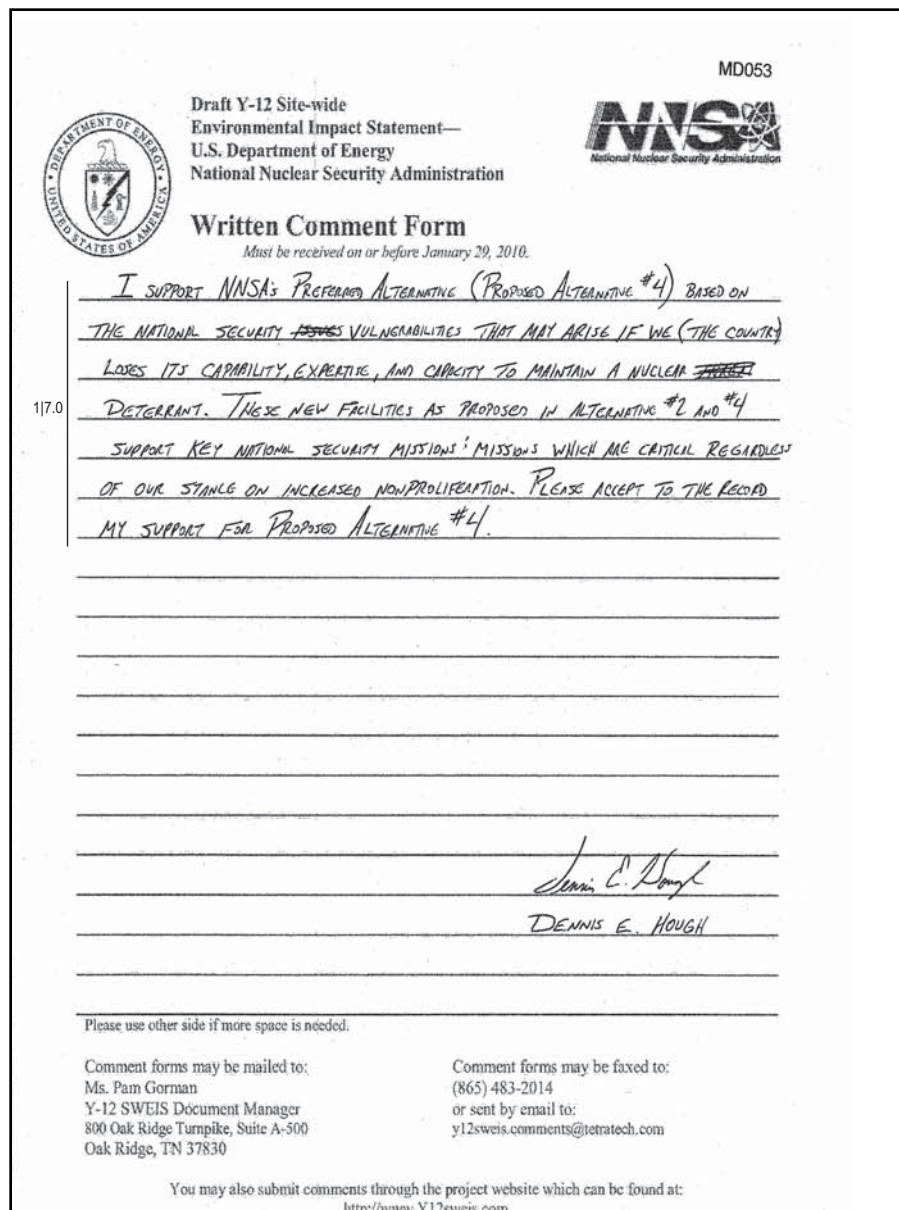 MD053
Draft Y-12 Site-wide
Environmental Impact Statement—
U.S. Department of Energy
National Nuclear Security Administration
DEPARTMENT OF ENERGY
UNITED STATES OF AMERICA
NNSA
National Nuclear Security Administration
Written Comment Form
Must be received on or before January 29, 2010.
I SUPPORT NNSA'S PREFERRED ALTERNATIVE (PROPOSED ALTERNATIVE #4) BASED ON
THE NATIONAL SECURITY ISSUES VULNERABILITIES THAT MAY ARISE IF WE (THE COUNTRY)
LOSES ITS CAPABILITY, EXPERTISE, AND CAPACITY TO MAINTAIN A NUCLEAR
1|7.0
DETERRANT. THESE NEW FACILITIES AS PROPOSED IN ALTERNATIVE #2 AND #4
SUPPORT KEY NATIONAL SECURITY MISSIONS; MISSIONS WHICH ARE CRITICAL REGARDLESS
OF OUR STANCE ON INCREASED NONPROLIFERATION. PLEASE ACCEPT TO THE RECORD
MY SUPPORT FOR PROPOSED ALTERNATIVE #4.
Dennis E. Hough
DENNIS E. HOUGH
Please use other side if more space is needed.
Comment forms may be mailed to:
Ms. Pam Gorman
Y-12 SWEIS Document Manager
800 Oak Ridge Turnpike, Suite A-500
Oak Ridge, TN 37830
Comment forms may be faxed to:
(865) 483-2014
or sent by email to:
y12sweis.comments@tetratech.com
You may also submit comments through the project website which can be found at:
http://www.Y12sweis.com